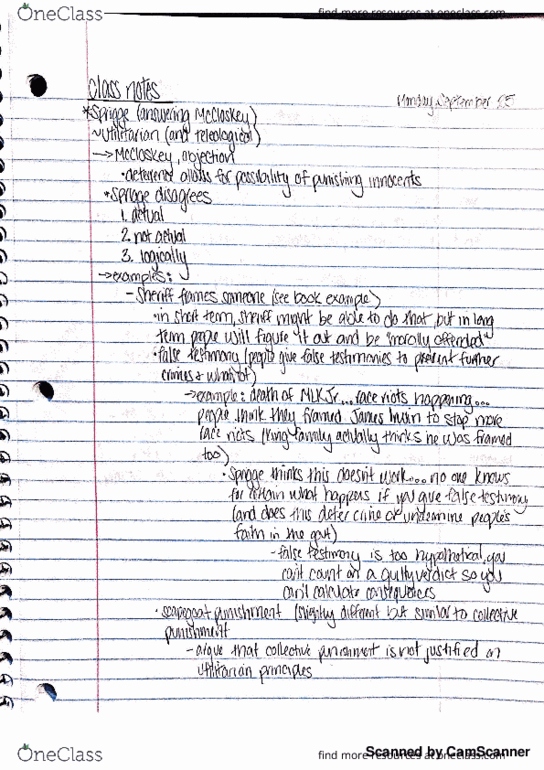 OneClass
find more resources at oneclass.com
Class notes
Monday September 25
*Sprigge (answering McCloskey)
~Utilitarian (and teleological)
→ McCloskey, objection
• deterrence allows for possibility of punishing innocents
*Sprigge disagrees
1. actual
2. not actual
3. logically
→ examples:
- Sheriff frames someone (see book example)
• in short term, sheriff might be able to do that, but in long
term people will figure it out and be "morally offended"
• false testimony (people give false testimonies to prevent further
crimes & whatnot)
→ example: death of MLK Jr... race riots happening...
people think they framed James to stop more
race riots (King family actually thinks he was framed
too)
• Sprigge thinks this doesn't work.... no one knows
for certain what happens if you give false testimony
(and does this deter crime or undermine people's
faith in the govt)
- false testimony is too hypothetical, you
can't count on a guilty verdict so you
can't calculate consequences
• scapegoat punishment (slightly different but similar to collective
punishment
- argue that collective punishment is not justified on
utilitarian principles
OneClass
find more resources at oneclass.com
Scanned by CamScanner